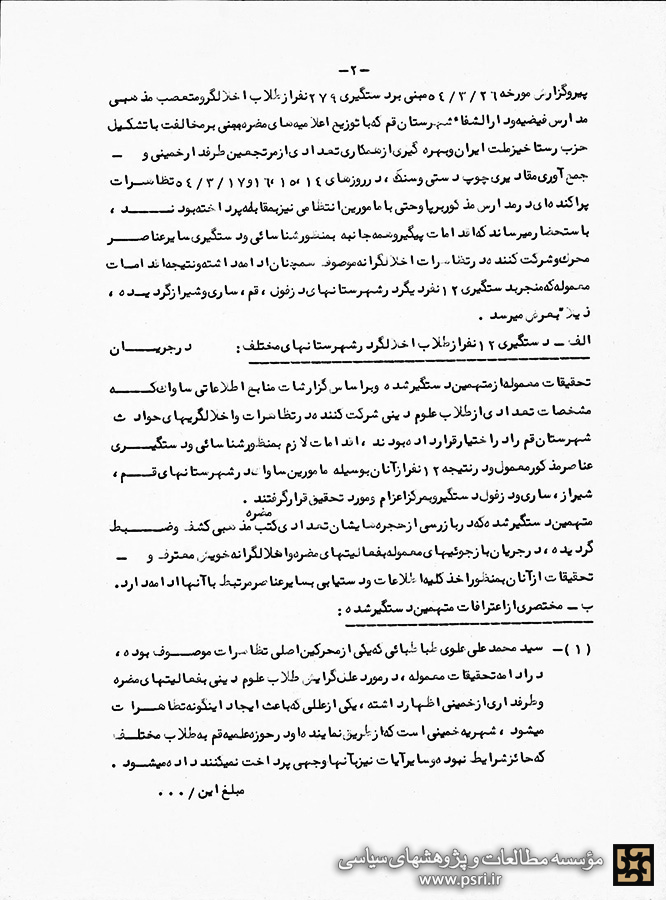 -۲-
پیرو گزارش مورخه ۵۴/۳/۲۶ مبنی بر دستگیری ۲۷۹ نفر از طلاب اخلالگر و متعصب مذهبی
مدارس فیضیه و دارالشفاء شهرستان قم که با توزیع اعلامیه‌های مضره مبنی بر مخالفت با تشکیل
حزب رستاخیز ملت ایران و بهره گیری از همکاری تعدادی از مرتجعین طرفدار خمینی و -
جمع آوری مقادیری چوب دستی و سنگ ، در روزهای ۱۴ ،۱۵ ،۱۶ و ۵۴/۳/۱۷ تظاهرات
پراکنده‌ای در مدارس مذکور برپا و حتی با مامورین انتظامی نیز بمقابله پرداخته بودند ،
باستحضار میرساند که اقدامات پیگیر و همه جانبه بمنظور شناسائی و دستگیری سایر عناصر
محرک و شرکت کننده در تظاهرات اخلالگرانه موصوف همچنان ادامه داشته و نتیجه اقدامات
معموله که منجر بدستگیری ۱۲ نفر دیگر در شهرستانهای دزفول ، قم ، ساری و شیراز گردیده ،
ذیلا" بعرض میرسد .
الف - دستگیری ۱۲ نفر از طلاب اخلالگر در شهرستانهای مختلف : در جریان
تحقیقات معموله از متهمین دستگیر شده و براساس گزارشات منابع اطلاعاتی ساواک که
مشخصات تعدادی از طلاب علوم دینی شرکت کننده در تظاهرات و اخلالگریهای حوادث
شهرستان قم را در اختیار قرار داده بودند ، اقدامات لازم بمنظور شناسائی و دستگیری
عناصر مذکور معمول و در نتیجه ۱۲ نفر از آنان بوسیله مامورین ساواک در شهرستانهای قم ،
شیراز ، ساری و دزفول دستگیر و بمرکز اعزام و مورد تحقیق قرار گرفتند .
متهمین دستگیر شده که در بازرسی از حجره‌هایشان تعدادی کتب مضره مذهبی کشف و ضبط
گردیده ، در جریان بازجوئیهای معموله بفعالیتهای مضره و اخلالگرانه خویش معترف و -
تحقیقات از آنان بمنظور اخذ کلیه اطلاعات و دستیابی بسایر عناصر مرتبط با آنها ادامه دارد.
ب - مختصری از اعترافات متهمین دستگیر شده :
(۱)- سید محمد علی علوی طباطبائی که یکی از محرکین اصلی تظاهرات موصوف بوده ،
در ادامه تحقیقات معموله ، در مورد علل گرایش طلاب علوم دینی بفعالیتهای مضره
و طرفداری از خمینی اظهار داشته ، یکی از عللی که باعث ایجاد اینگونه تظاهرات
میشود ، شهریه خمینی است که از طریق نماینده او در حوزه علمیه قم به طلاب مختلف
که حائز شرایط نبوده و سایر آیات نیز بآنها وجهی پرداخت نمیکنند داده میشود .
مبلغ این /۰۰۰
مؤسسه مطالعات و پژوهشهای سیاسی
www.psri.ir